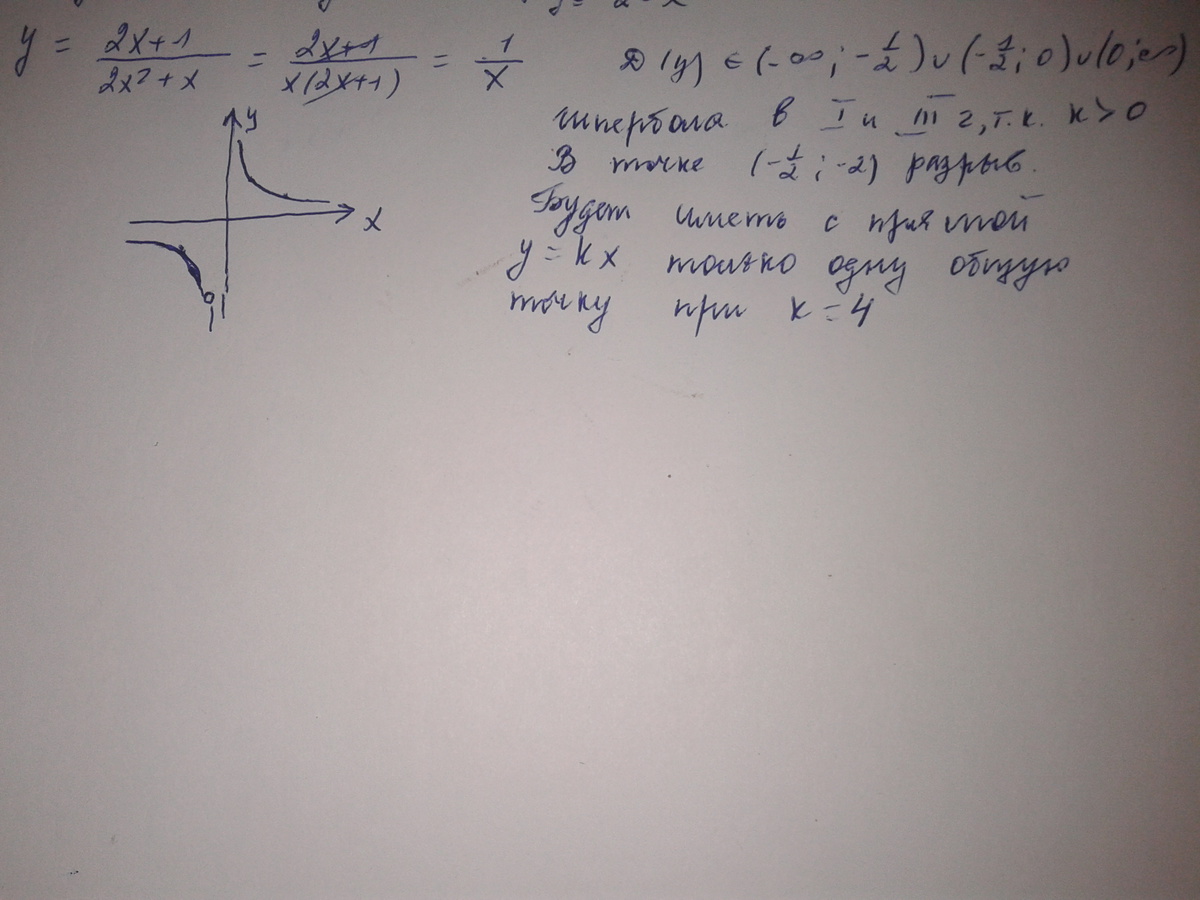 y = (2x+1)/(2x²+x) = (2x+1)/(x(2x+1)) = 1/x   D(y) ∈ (-∞; -1/2) ∪ (-1/2; 0) ∪ (0; ∞)
гипербола в I и III г, т.к. к > 0
В точке (-1/2; -2) разрыв.
Будет иметь с прямой
y = kx только одну общую
точку при к = 4
y
x